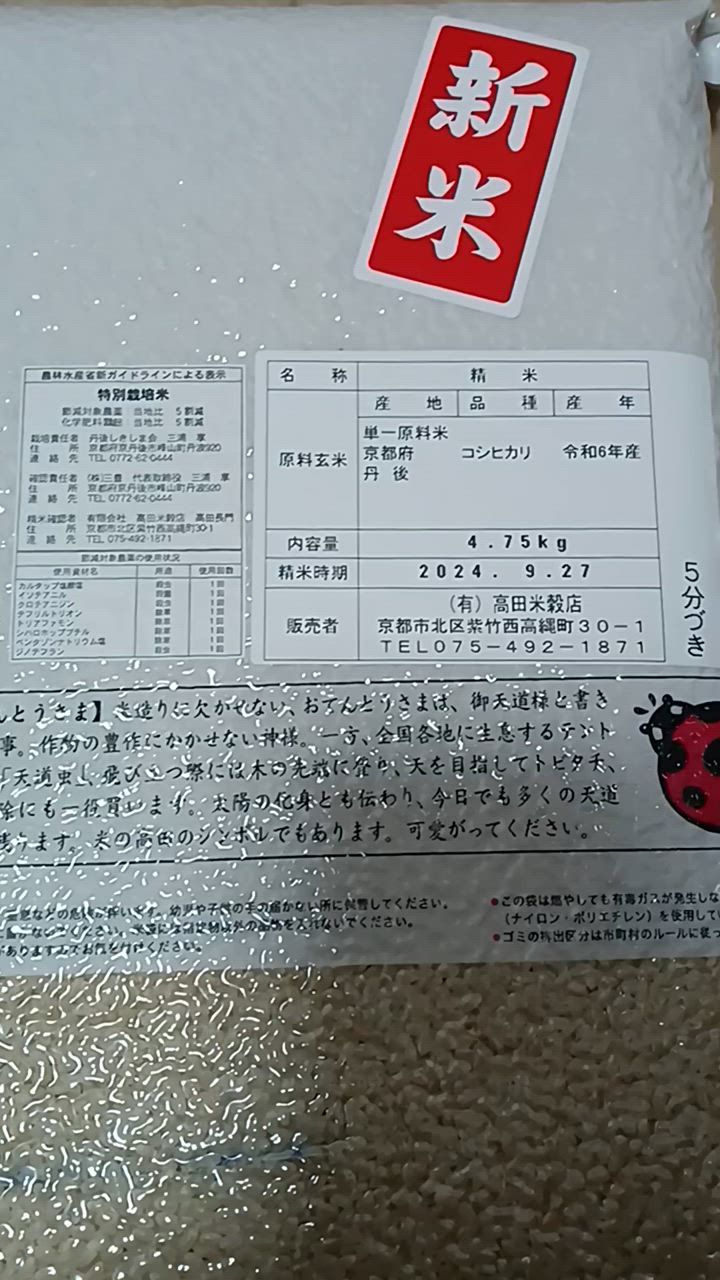 新米
農林水産省新ガイドラインによる表示
特別栽培米
節減対象農薬 当地比 5割減
化学肥料窒素 当地比 5割減
栽培責任者 丹後しきしま会 三浦 享
住所 京都府京丹後市峰山町丹波920
連絡先 TEL 0772-62-0444
確認責任者 (株)三豊 代表取締役 三浦 享
住所 京都府京丹後市峰山町丹波920
連絡先 TEL 0772-62-0444
精米確認者 有限会社 高田米穀店 高田長門
住所 京都市北区紫竹西高縄町30-1
連絡先 TEL 075-492-1871
節減対象農薬の使用状況
使用資材名 用途 使用回数
カルタップ塩酸塩 殺虫 1回
イソチアニル 殺菌 1回
クロチアニジン 殺虫 1回
テフリルトリオン 除草 1回
トリアファモン 除草 1回
シハロホップブチル 除草 1回
ベンタゾンナトリウム塩 除草 1回
ジノテフラン 殺虫 1回
名称 精米
産地 品種 産年
原料玄米 単一原料米
京都府 コシヒカリ 令和6年産
丹後
内容量 4.75kg
精米時期 2024. 9.27
販売者 (有)高田米穀店
京都市北区紫竹西高縄町30-1
TEL075-492-1871
5分づき
んとうさま】米造りに欠かせない、おてんとうさまは、御天道様と書き
事。作物の豊作にかかせない神様。一方、全国各地に生息するテント
「天道虫」、飛び立つ際には木の先端に登り、天を目指してトビタチ、
除にも一役買います。太陽の化身とも伝わり、今日でも多くの天道
残ります。米の高品のシンボルでもあります。可愛がってください。
窒息などの危険が伴います。幼児や子供の手の届かない所に保管してください。
ありますのでお気を付けください。
●この袋は燃やしても有毒ガスが発生しな
(ナイロン・ポリエチレン)を使用してい
●ゴミの排出区分は市町村のルールに従っ